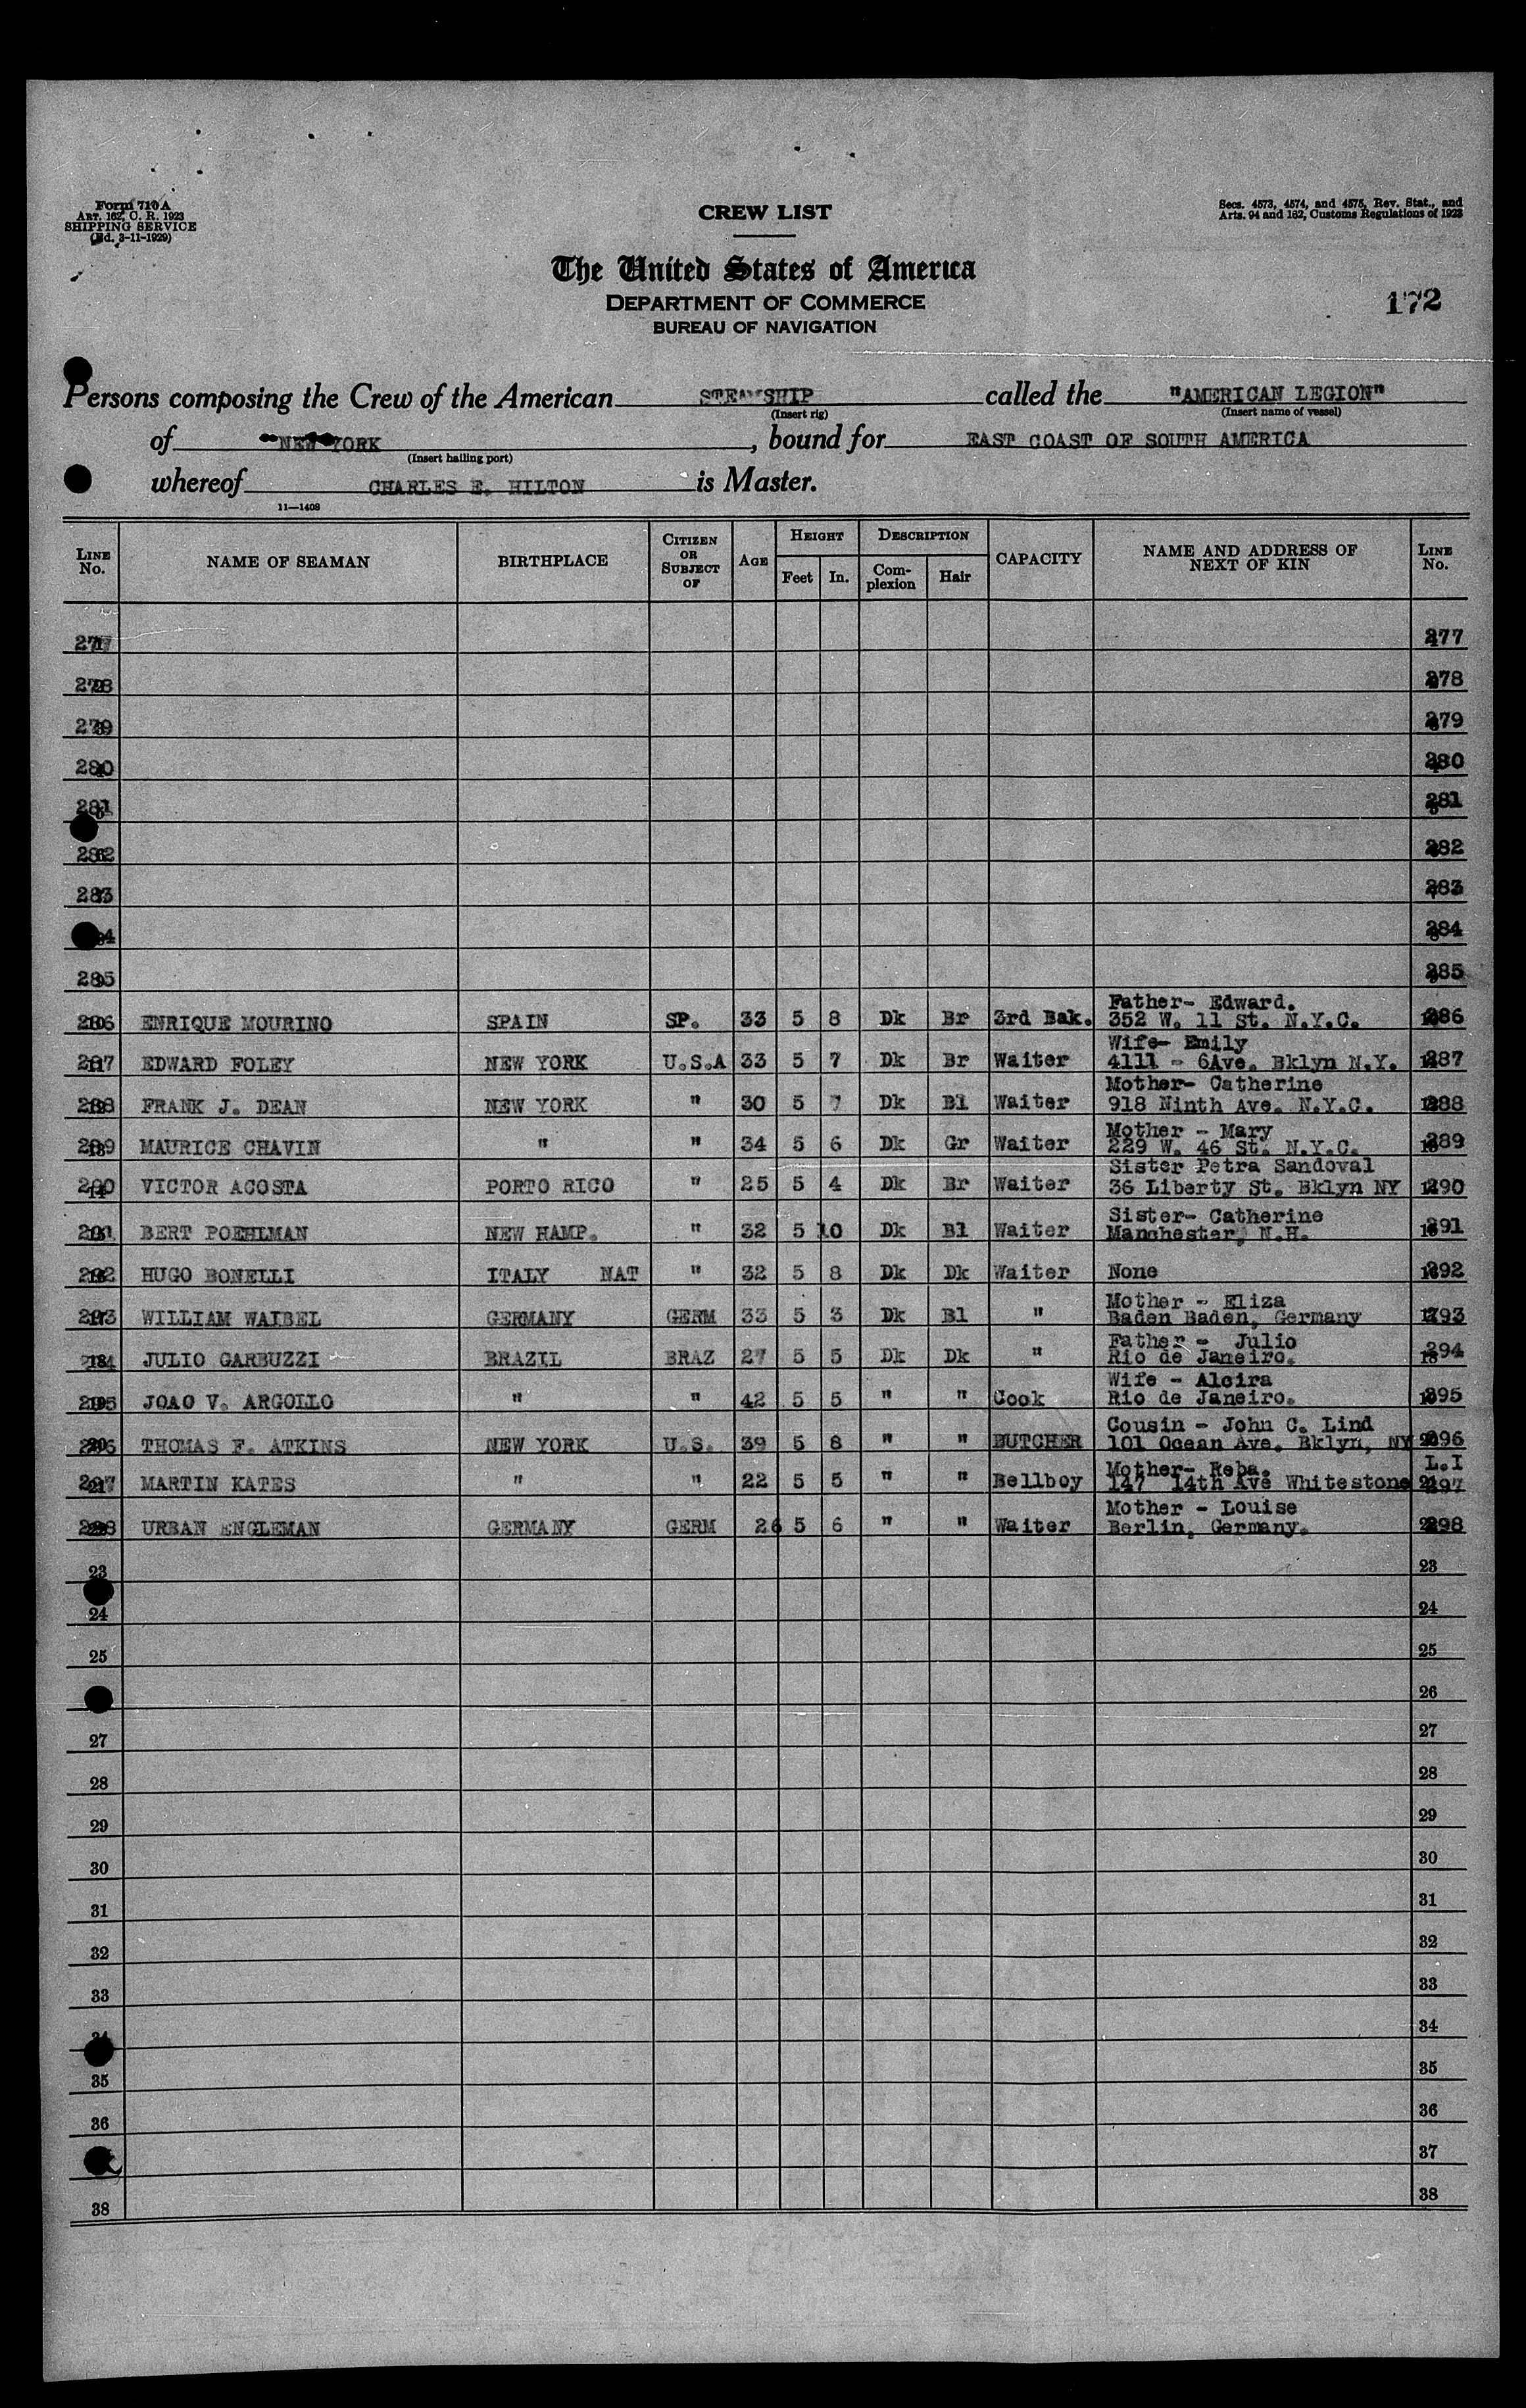 Form 710 A
ART. 162, C. R. 1923
SHIPPING SERVICE
(Ed. 3-11-1929)
CREW LIST
Secs. 4573, 4574, and 4575, Rev. Stat., and
Arts. 94 and 162, Customs Regulations of 1923
The United States of America
DEPARTMENT OF COMMERCE
BUREAU OF NAVIGATION
172
Persons composing the Crew of the American STEAMSHIP called the "AMERICAN LEGION"
(Insert rig) (Insert name of vessel)
of NEW YORK, bound for EAST COAST OF SOUTH AMERICA
(Insert hailing port)
whereof CHARLES E. HILTON is Master.
11—1408
LINE No. NAME OF SEAMAN BIRTHPLACE CITIZEN OR SUBJECT OF AGE HEIGHT Feet In. DESCRIPTION Complexion Hair CAPACITY NAME AND ADDRESS OF NEXT OF KIN LINE No.
277 277
278 278
279 279
280 280
281 281
282 282
283 283
284
285 285
Father- Edward.
286 ENRIQUE MOURINO SPAIN SP. 33 5 8 Dk Br 3rd Bak. 352 W. 11 St. N.Y.C. 286
Wife- Emily
287 EDWARD FOLEY NEW YORK U.S.A 33 5 7 Dk Br Waiter 4111 - 6Ave. Bklyn N.Y. 287
Mother- Catherine
288 FRANK J. DEAN NEW YORK " 30 5 7 Dk Bl Waiter 918 Ninth Ave. N.Y.C. 288
Mother - Mary
289 MAURICE CHAVIN " " 34 5 6 Dk Gr Waiter 229 W. 46 St. N.Y.C. 289
Sister Petra Sandoval
290 VICTOR ACOSTA PORTO RICO " 25 5 4 Dk Br Waiter 36 Liberty St. Bklyn NY 290
Sister- Catherine
291 BERT POEHLMAN NEW HAMP. " 32 5 10 Dk Bl Waiter Manchester, N.H. 291
292 HUGO BONELLI ITALY NAT " 32 5 8 Dk Dk Waiter None 292
Mother - Eliza
293 WILLIAM WAIBEL GERMANY GERM 33 5 3 Dk Bl " Baden Baden, Germany 293
Father - Julio
294 JULIO GARBUZZI BRAZIL BRAZ 27 5 5 Dk Dk " Rio de Janeiro. 294
Wife - Alcira
295 JOAO V. ARGOLLO " " 42 5 5 " " Cook Rio de Janeiro. 295
Cousin - John C. Lind
296 THOMAS F. ATKINS NEW YORK U.S. 39 5 8 " " BUTCHER 101 Ocean Ave. Bklyn, NY 296
Mother- Reba. L.I
297 MARTIN KATES " " 22 5 5 " " Bellboy 147 14th Ave Whitestone 297
Mother - Louise
298 URBAN ENGLEMAN GERMANY GERM 26 5 6 " " Waiter Berlin, Germany. 298
23 23
24 24
25 25
26
27 27
28 28
29 29
30 30
31 31
32 32
33 33
34 34
35 35
36 36
37
38 38